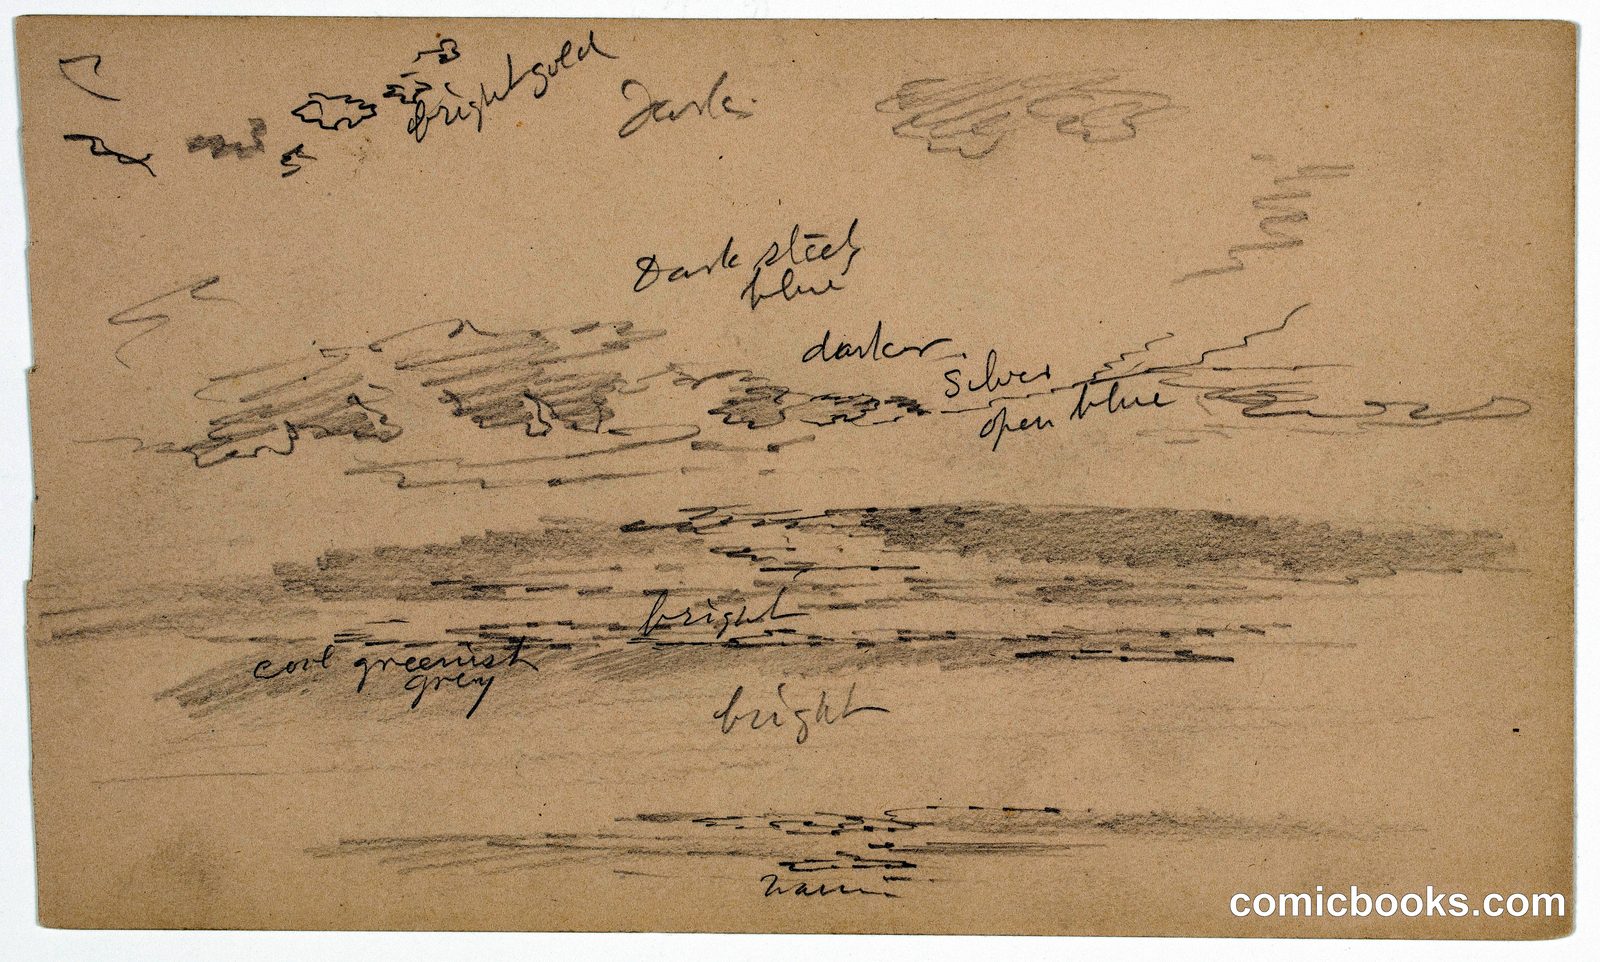 bright gold
Dark
Dark steel
blue
darker
silver
open blue
bright
cool greenish
grey
bright
warm
comicbooks.com